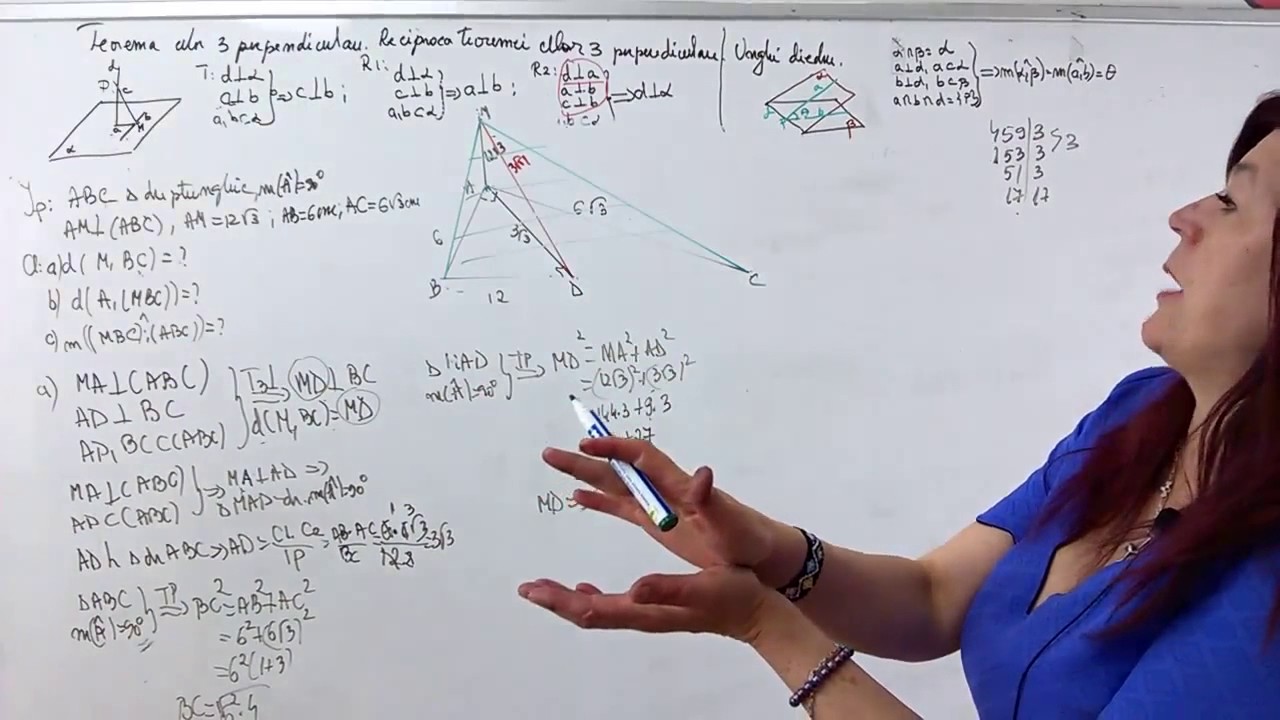 Teorema celor 3 perpendiculare. Reciproca teoremei celor 3 perpendiculare. Unghi diedru.
T: d⊥α
a⊥b
a,b⊂α
} ⇒ c⊥b ;
R1: d⊥α
c⊥b
a,b⊂α
} ⇒ a⊥b ;
R2: d⊥a
a⊥b
c⊥b
a,b⊂α
} ⇒ d⊥α
α∩β=d
a⊥d, a⊂α
b⊥d, b⊂β
a∩b∩d={P}
} ⇒ m(α,β)=m(a,b)=θ
459|3
153|3 > 3
51|3
17|17
Yp: ABC Δ dreptunghic, m(Â)=90°
AM⊥(ABC), AM=12√3; AB=6cm; AC=6√3cm
a) d(M,BC)=?
b) d(A,(MBC))=?
c) m((MBC);(ABC))=?
M
12√3
3√51
A
6√3
6
3√3
B
12
D
C
a) MA⊥(ABC)
AD⊥BC
AD,BC⊂(ABC)
} T3⊥ ⇒ MD⊥BC
d(M,BC)=MD
MA⊥(ABC)
AD⊂(ABC)
} ⇒ MA⊥AD ⇒
ΔMAD-dr. m(Â)=90°
AD h Δdr ABC ⇒ AD = C1·C2/IP = AB·AC/BC = 3√3
ΔABC
m(Â)=90°
} TP ⇒ BC²=AB²+AC²
=6²+(6√3)²
=6²(1+3)
BC=√6²·4
ΔMAD
m(Â)=90°
} TP ⇒ MD²=MA²+AD²
=(12√3)²+(3√3)²
144·3+9·3
+27
MD=